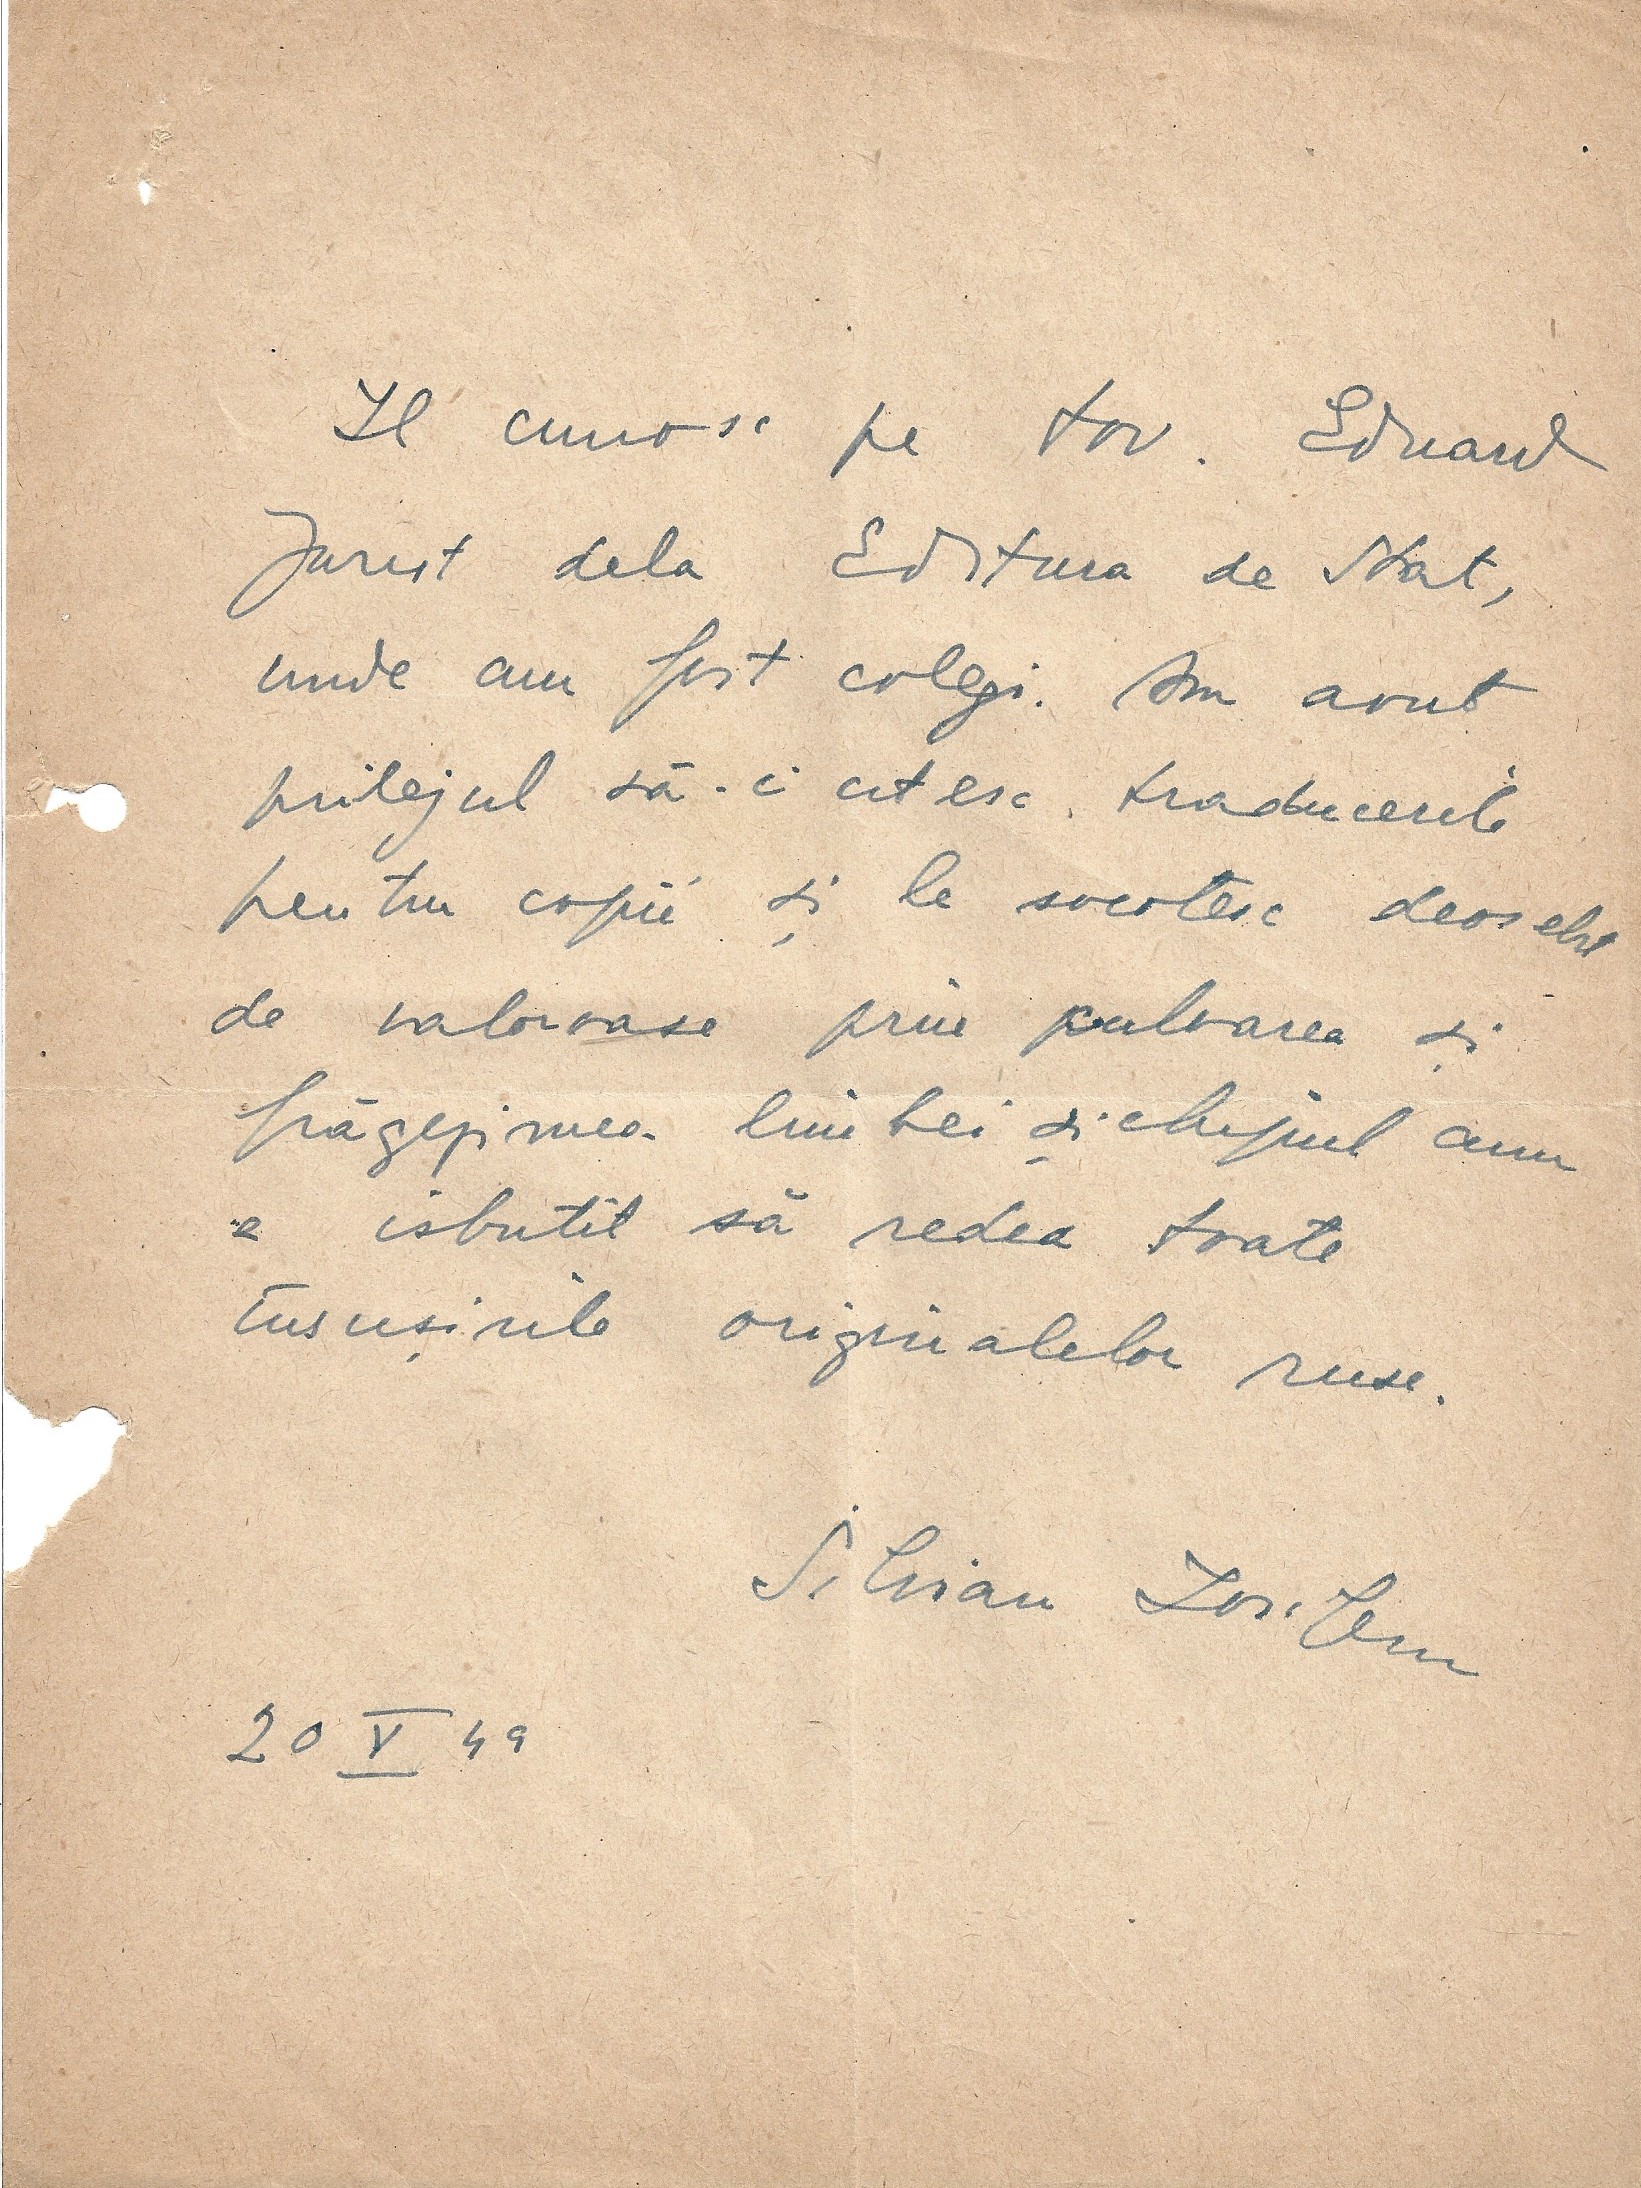 Il cunosc pe tov. Eduard
Jurist dela Editura de Stat,
unde am fost colegi. Am avut
prilejul să-i citesc traducerile
pentru copii și le socotesc deosebit
de valoroase prin culoarea și
frăgezimea limbei și chipul cum
a isbutit să redea toate
însușirile originalelor ruse.
Silvian Iosifescu
20 V 49